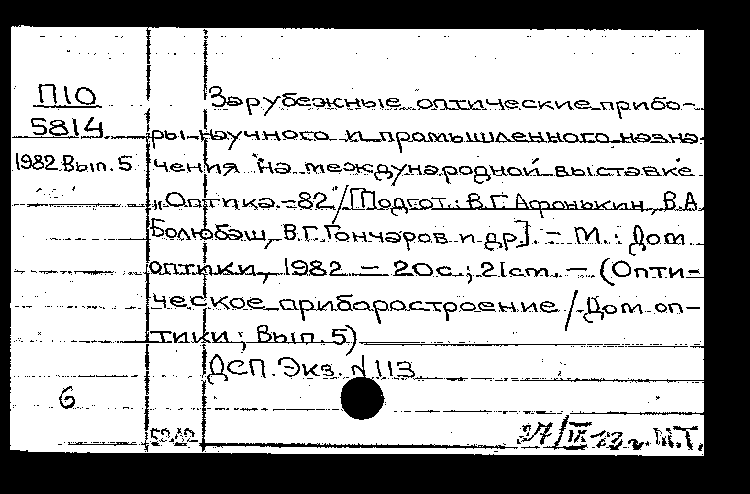 П10
5814
1982 Вып. 5
Зарубежные оптические прибо-
ры научного и промышленного назна-
чения на международной выставке
„Оптика-82"/[Подгот.: В.Г. Афонькин, В.А.
Болюбаш, В.Г. Гончаров и др]. - М.: Дом
оптики, 1982 - 20с.; 21см. - (Опти-
ческое прибаростроение / Дом оп-
тики; Вып. 5)
ДСП. Экз. N 113
6
27/IX М.Т.